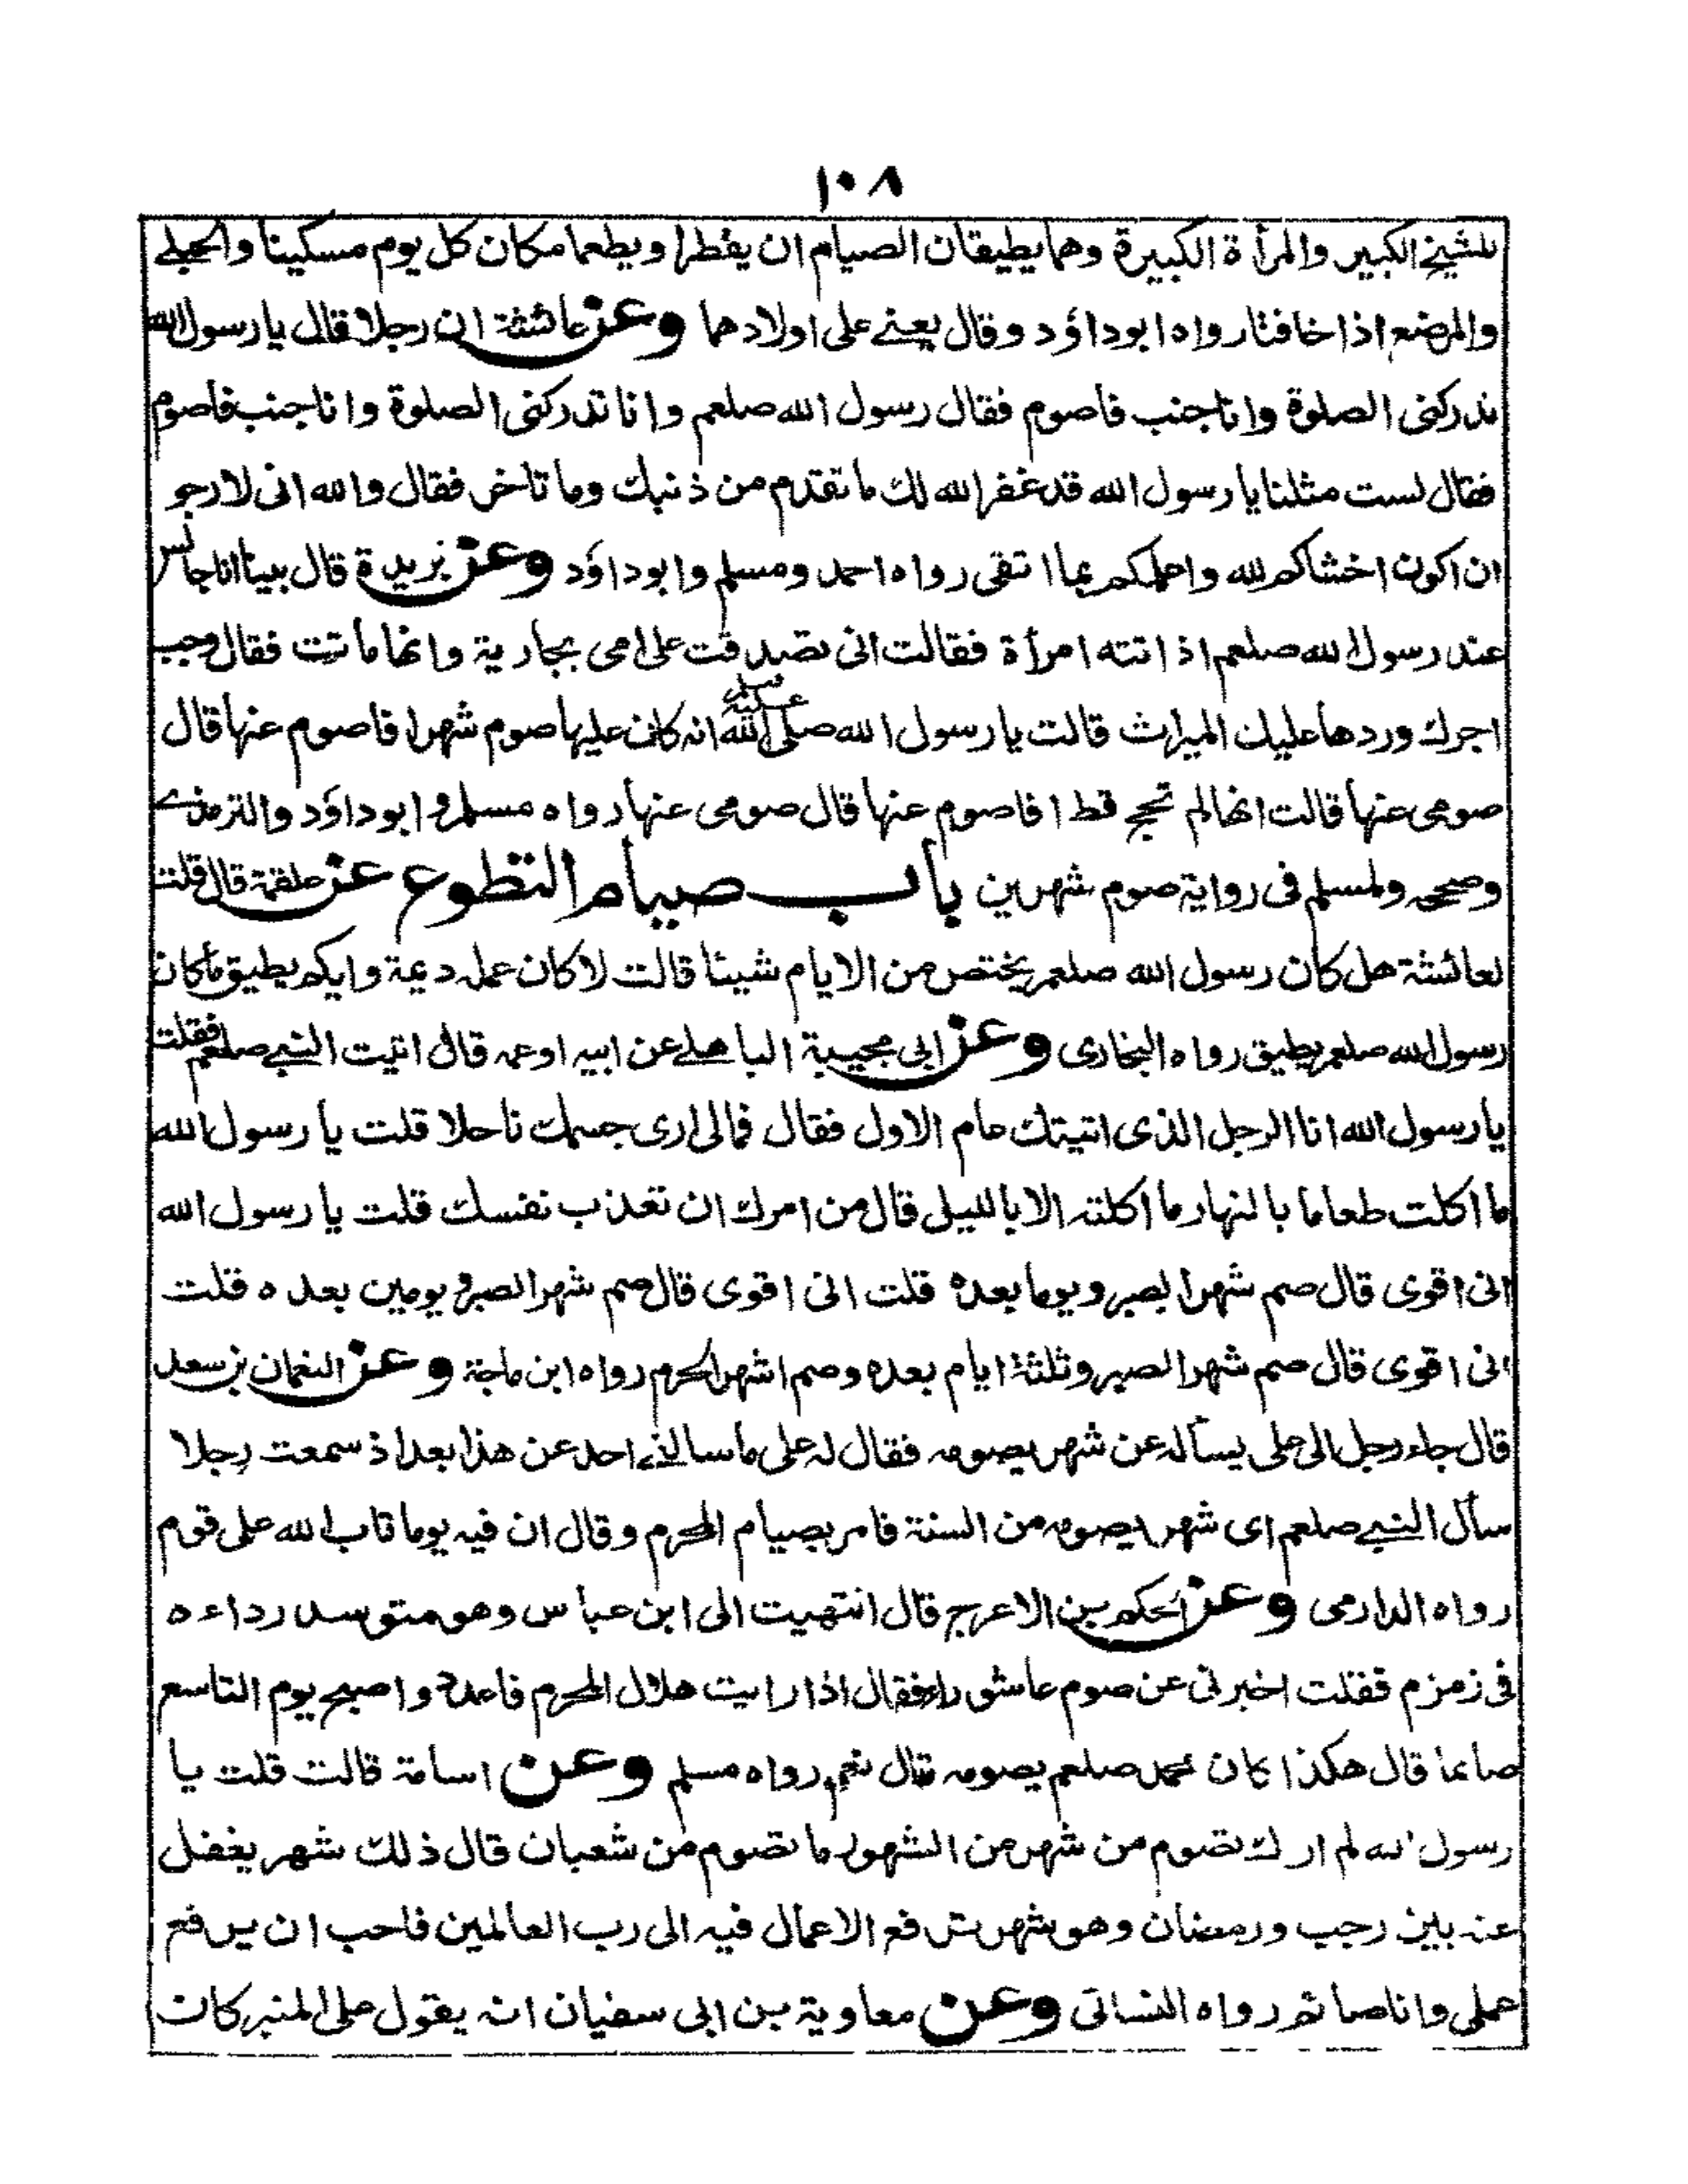 ١٠٨
للشيخ الكبير والمرأة الكبيرة وهما يطيقان الصيام ان يفطرا ويطعما مكان كل يوم مسكينا والحبلے
والمرضع اذا خافتا رواه ابوداؤد وقال يعنے على اولادهما وعن عائشة ان رجلا قال يا رسول الله
تدركنى الصلوة وانا جنب فاصوم فقال رسول الله صلعم وانا تدركنى الصلوة وانا جنب فاصوم
فقال لست مثلنا يا رسول الله قد غفر الله لك ما تقدم من ذنبك وما تاخر فقال والله انى لارجو
ان اكون اخشاكم لله واعلمكم بما اتقى رواه احمد ومسلم وابوداؤد وعن بريدة قال بينا انا جالس
عند رسول الله صلعم اذ اتته امرأة فقالت انى تصدقت على امى بجارية وانها ماتت فقال وجب
اجرك وردها عليك الميراث قالت يا رسول الله صلى الله عليه وسلم انه كان عليها صوم شهر افاصوم عنها قال
صومى عنها قالت انها لم تحج قط افاصوم عنها قال صومى عنها رواه مسلم وابوداؤد والترمذے
وصححه ولمسلم فى رواية صوم شهرين باب صيام التطوع عن علقمة قال قلت
لعائشة هل كان رسول الله صلعم يختص من الايام شيئا قالت لا كان عمله ديمة وايكم يطيق ما كان
رسول الله صلعم يطيق رواه البخارى وعن ابى مجيبة الباهلے عن ابيه او عمه قال اتيت النبے صلعم فقلت
يا رسول الله انا الرجل الذى اتيتك عام الاول فقال فمالى ارى جسمك ناحلا قلت يا رسول الله
ما اكلت طعاما بالنهار ما اكلته الا بالليل قال من امرك ان تعذب نفسك قلت يا رسول الله
انى اقوى قال صم شهر الصبر ويوما بعده قلت انى اقوى قال صم شهر الصبر ويومين بعده قلت
انى اقوى قال صم شهر الصبر وثلثة ايام بعده وصم اشهر الحرم رواه ابن ماجة وعن النعمان بن سعد
قال جاء رجل الى على يسأله عن شهر يصومه فقال له على ما سالنے احد عن هذا بعد اذ سمعت رجلا
سأل النبے صلعم اى شهر يصومه من السنة فامر بصيام المحرم وقال ان فيه يوما تاب الله على قوم
رواه الدارمى وعن الحكم بن الاعرج قال انتهيت الى ابن عباس وهو متوسد رداءه
فى زمزم فقلت اخبرنى عن صوم عاشوراء فقال اذا رايت هلال المحرم فاعدد واصبح يوم التاسع
صائما قال هكذا كان محمد صلعم يصومه قال نعم رواه مسلم وعن اسامة قالت قلت يا
رسول الله لم ارك تصوم من شهر من الشهور ما تصوم من شعبان قال ذلك شهر يغفل
عنه بين رجب ورمضان وهو شهر ترفع الاعمال فيه الى رب العالمين فاحب ان يرفع
عملى وانا صائم رواه النسائى وعن معاوية بن ابى سفيان انه يقول على المنبر كان